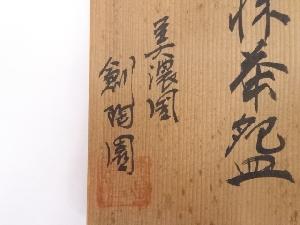 抹茶盌
美濃国
劍陶園